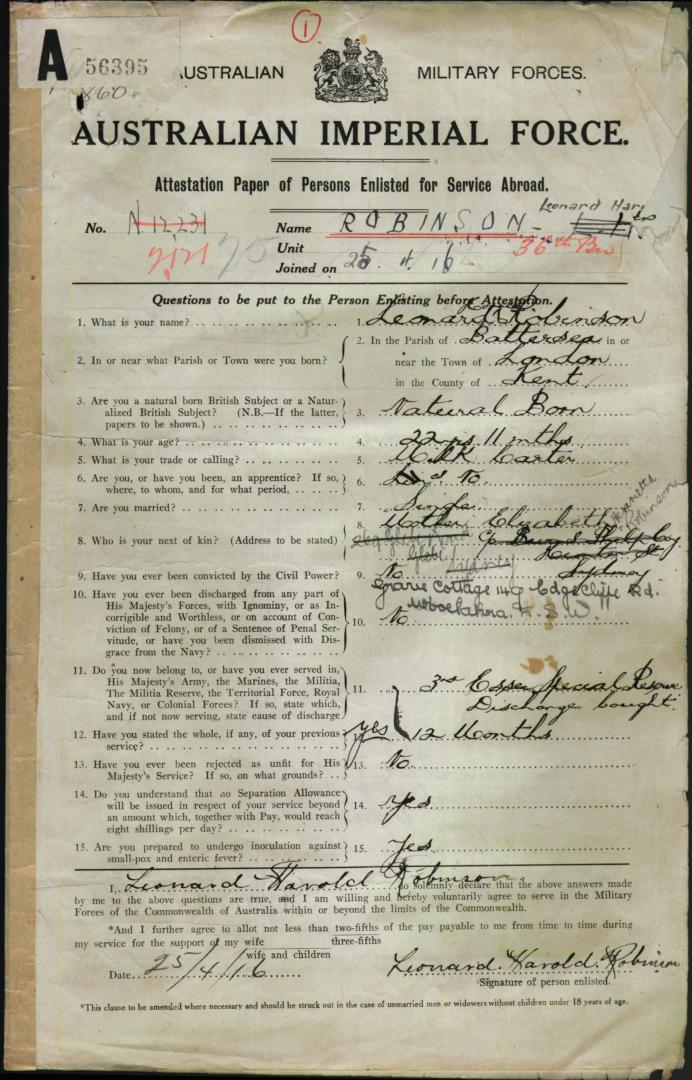 ①
A 56395
860
AUSTRALIAN MILITARY FORCES.
AUSTRALIAN IMPERIAL FORCE.
Attestation Paper of Persons Enlisted for Service Abroad.
No. N 12231
Name ROBINSON - Leonard Har
2121 75
Unit 36th Bn
Joined on 25 4 16
Questions to be put to the Person Enlisting before Attestation.
1. What is your name? 1. Leonard H Robinson
2. In or near what Parish or Town were you born? 2. In the Parish of Battersea in or
near the Town of London
in the County of Kent
3. Are you a natural born British Subject or a Natu-
ralized British Subject? (N.B.—If the latter,
papers to be shown.) 3. Natural Born
4. What is your age? 4. 22 yrs 11 mths
5. What is your trade or calling? 5. Milk Carter
6. Are you, or have you been, an apprentice? If so,
where, to whom, and for what period, 6. No
7. Are you married? 7. Single
8. Who is your next of kin? (Address to be stated) 8. Mother Elizabeth
Robinson
C/o Burns Philp Coy
Glebe
Sydney
Hunter St
Sydney
9. Have you ever been convicted by the Civil Power? 9. No
Grave Cottage 149 Edgecliffe Rd.
Woollahra. N.S.W.
10. Have you ever been discharged from any part of
His Majesty's Forces, with Ignominy, or as In-
corrigible and Worthless, or on account of Con-
viction of Felony, or of a Sentence of Penal Ser-
vitude, or have you been dismissed with Dis-
grace from the Navy? 10. No
11. Do you now belong to, or have you ever served in,
His Majesty's Army, the Marines, the Militia,
The Militia Reserve, the Territorial Force, Royal
Navy, or Colonial Forces? If so, state which,
and if not now serving, state cause of discharge 11. 3rd Essex Special Reserve
Discharge bought.
12 Months
12. Have you stated the whole, if any, of your previous
service? yes
13. Have you ever been rejected as unfit for His
Majesty's Service? If so, on what grounds? 13. No
14. Do you understand that no Separation Allowance
will be issued in respect of your service beyond
an amount which, together with Pay, would reach
eight shillings per day? 14. yes
15. Are you prepared to undergo inoculation against
small-pox and enteric fever? 15. Yes
I, Leonard Harold Robinson do solemnly declare that the above answers made
by me to the above questions are true, and I am willing and hereby voluntarily agree to serve in the Military
Forces of the Commonwealth of Australia within or beyond the limits of the Commonwealth.
*And I further agree to allot not less than two-fifths of the pay payable to me from time to time during
three-fifths
my service for the support of my wife
wife and children
Date 25/4/16
Leonard. Harold. Robinson
Signature of person enlisted.
*This clause to be amended where necessary and should be struck out in the case of unmarried men or widowers without children under 18 years of age.